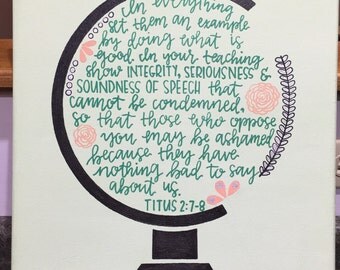 In everything
set them an example
by doing what is
good. In your teaching
show INTEGRITY, SERIOUSNESS &
SOUNDNESS OF SPEECH that
cannot be condemned,
so that those who oppose
you may be ashamed
because they have
nothing bad to say
about us.
TITUS 2:7-8